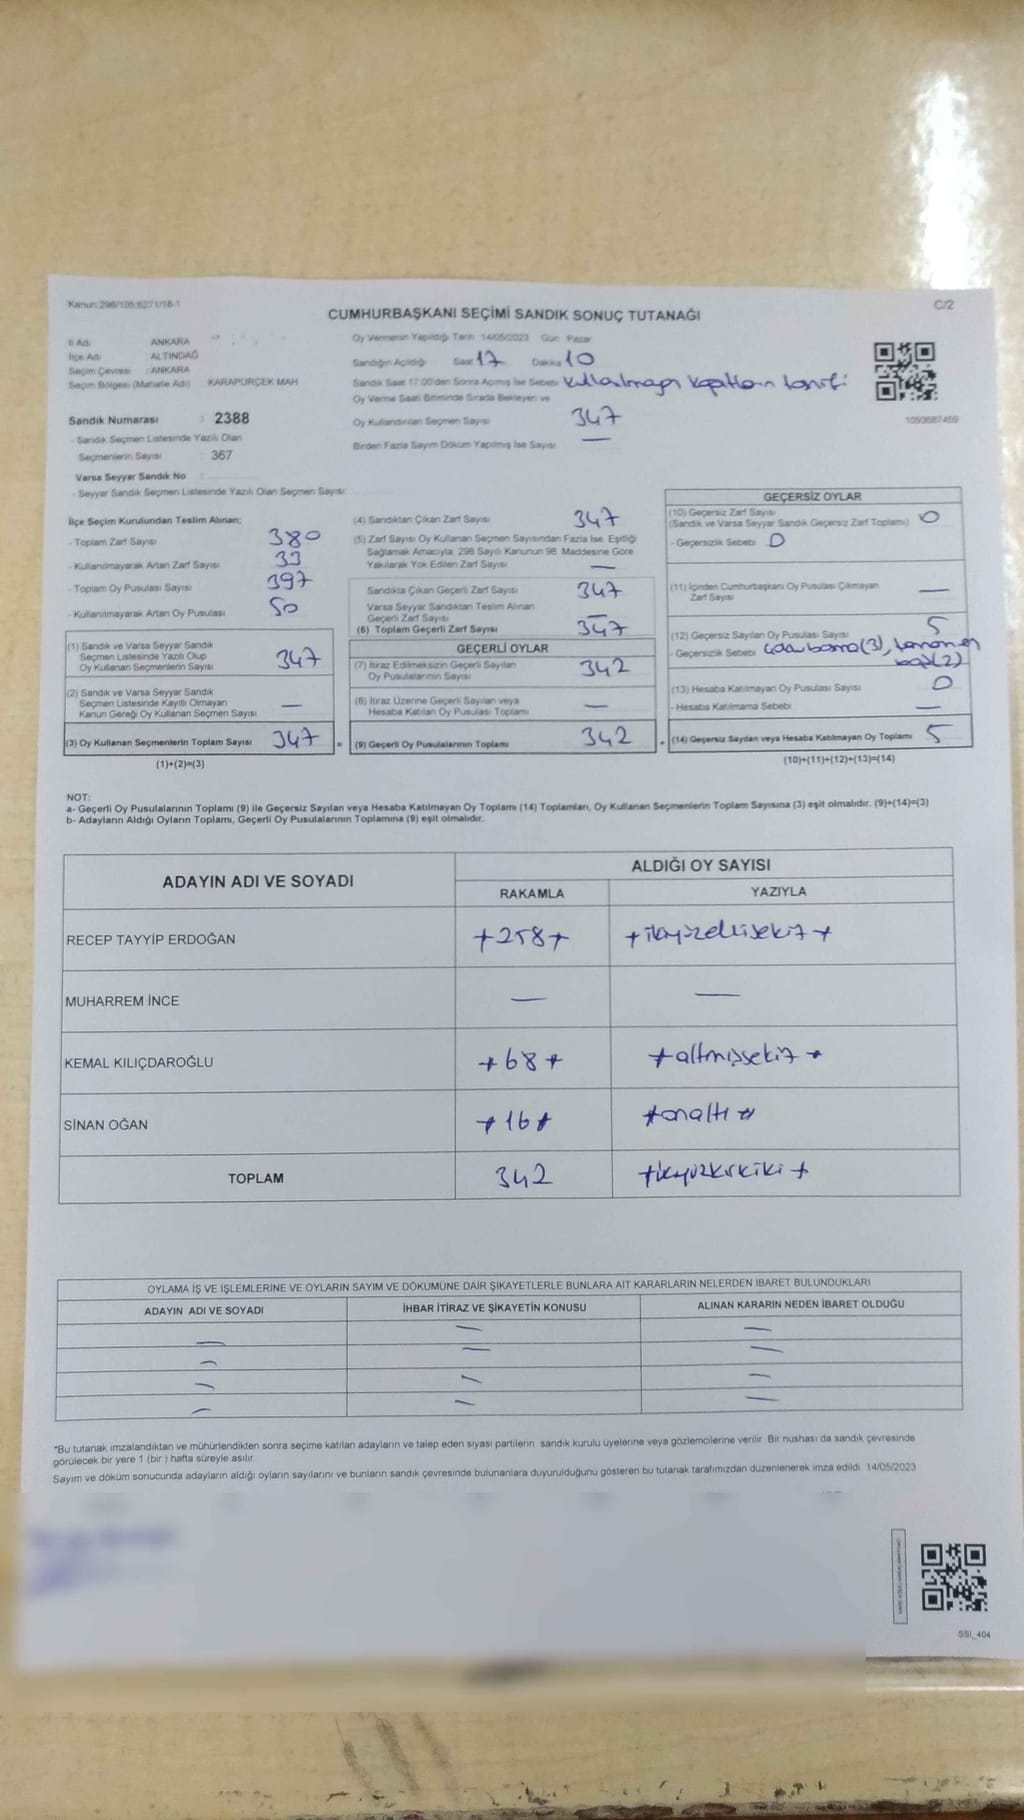 Kanun:298/105:6271/18-1
C/2
CUMHURBAŞKANI SEÇİMİ SANDIK SONUÇ TUTANAĞI
İl Adı : ANKARA
İlçe Adı : ALTINDAĞ
Seçim Çevresi : ANKARA
Seçim Bölgesi (Mahalle Adı) : KARAPÜRÇEK MAH
Oy Vermenin Yapıldığı Tarih 14/05/2023 Gün Pazar
Sandığın Açıldığı Saat 17 Dakika 10
Sandık Saat 17:00'den Sonra Açılmış İse Sebebi
Oy Verme Saati Bitiminde Sırada Bekleyen ve
Oy Kullandırılan Seçmen Sayısı 347
Birden Fazla Sayım Döküm Yapılmış İse Sayısı —
1093687459
Sandık Numarası : 2388
- Sandık Seçmen Listesinde Yazılı Olan
Seçmenlerin Sayısı : 367
Varsa Seyyar Sandık No :
- Seyyar Sandık Seçmen Listesinde Yazılı Olan Seçmen Sayısı
İlçe Seçim Kurulundan Teslim Alınan;
- Toplam Zarf Sayısı 380
- Kullanılmayarak Artan Zarf Sayısı 33
- Toplam Oy Pusulası Sayısı 397
- Kullanılmayarak Artan Oy Pusulası 50
(1) Sandık ve Varsa Seyyar Sandık
Seçmen Listesinde Yazılı Olup
Oy Kullanan Seçmenlerin Sayısı 347
(2) Sandık ve Varsa Seyyar Sandık
Seçmen Listesinde Kayıtlı Olmayan
Kanun Gereği Oy Kullanan Seçmen Sayısı —
(3) Oy Kullanan Seçmenlerin Toplam Sayısı 347 =
(1)+(2)=(3)
(4) Sandıktan Çıkan Zarf Sayısı 347
(5) Zarf Sayısı Oy Kullanan Seçmen Sayısından Fazla İse, Eşitliği
Sağlamak Amacıyla, 298 Sayılı Kanunun 98. Maddesine Göre
Yakılarak Yok Edilen Zarf Sayısı —
Sandıkta Çıkan Geçerli Zarf Sayısı 347
Varsa Seyyar Sandıktan Teslim Alınan
Geçerli Zarf Sayısı —
(6) Toplam Geçerli Zarf Sayısı 347
GEÇERLİ OYLAR
(7) İtiraz Edilmeksizin Geçerli Sayılan
Oy Pusulalarının Sayısı 342
(8) İtiraz Üzerine Geçerli Sayılan veya
Hesaba Katılan Oy Pusulası Toplamı —
(9) Geçerli Oy Pusulalarının Toplamı 342 +
GEÇERSİZ OYLAR
(10) Geçersiz Zarf Sayısı
(Sandık ve Varsa Seyyar Sandık Geçersiz Zarf Toplamı) 0
- Geçersizlik Sebebi 0
(11) İçinden Cumhurbaşkanı Oy Pusulası Çıkmayan
Zarf Sayısı —
(12) Geçersiz Sayılan Oy Pusulası Sayısı 5
- Geçersizlik Sebebi
(13) Hesaba Katılmayan Oy Pusulası Sayısı 0
- Hesaba Katılmama Sebebi —
(14) Geçersiz Sayılan veya Hesaba Katılmayan Oy Toplamı 5
(10)+(11)+(12)+(13)=(14)
NOT:
a- Geçerli Oy Pusulalarının Toplamı (9) ile Geçersiz Sayılan veya Hesaba Katılmayan Oy Toplamı (14) Toplamları, Oy Kullanan Seçmenlerin Toplam Sayısına (3) eşit olmalıdır. (9)+(14)=(3)
b- Adayların Aldığı Oyların Toplamı, Geçerli Oy Pusulalarının Toplamına (9) eşit olmalıdır.
ADAYIN ADI VE SOYADI
ALDIĞI OY SAYISI
RAKAMLA YAZIYLA
RECEP TAYYİP ERDOĞAN +258+ +ikiyüzellisekiz+
MUHARREM İNCE — —
KEMAL KILIÇDAROĞLU +68+ +altmışsekiz+
SİNAN OĞAN +16+ +onaltı+
TOPLAM 342
OYLAMA İŞ VE İŞLEMLERİNE VE OYLARIN SAYIM VE DÖKÜMÜNE DAİR ŞİKAYETLERLE BUNLARA AİT KARARLARIN NELERDEN İBARET BULUNDUKLARI
ADAYIN ADI VE SOYADI İHBAR İTİRAZ VE ŞİKAYETİN KONUSU ALINAN KARARIN NEDEN İBARET OLDUĞU
— — —
— — —
— — —
— — —
*Bu tutanak imzalandıktan ve mühürlendikten sonra seçime katılan adayların ve talep eden siyasi partilerin sandık kurulu üyelerine veya gözlemcilerine verilir. Bir nüshası da sandık çevresinde
görülecek bir yere 1 (bir) hafta süreyle asılır.
Sayım ve döküm sonucunda adayların aldığı oyların sayılarını ve bunların sandık çevresinde bulunanlara duyurulduğunu gösteren bu tutanak tarafımızdan düzenlenerek imza edildi. 14/05/2023
SSI_404